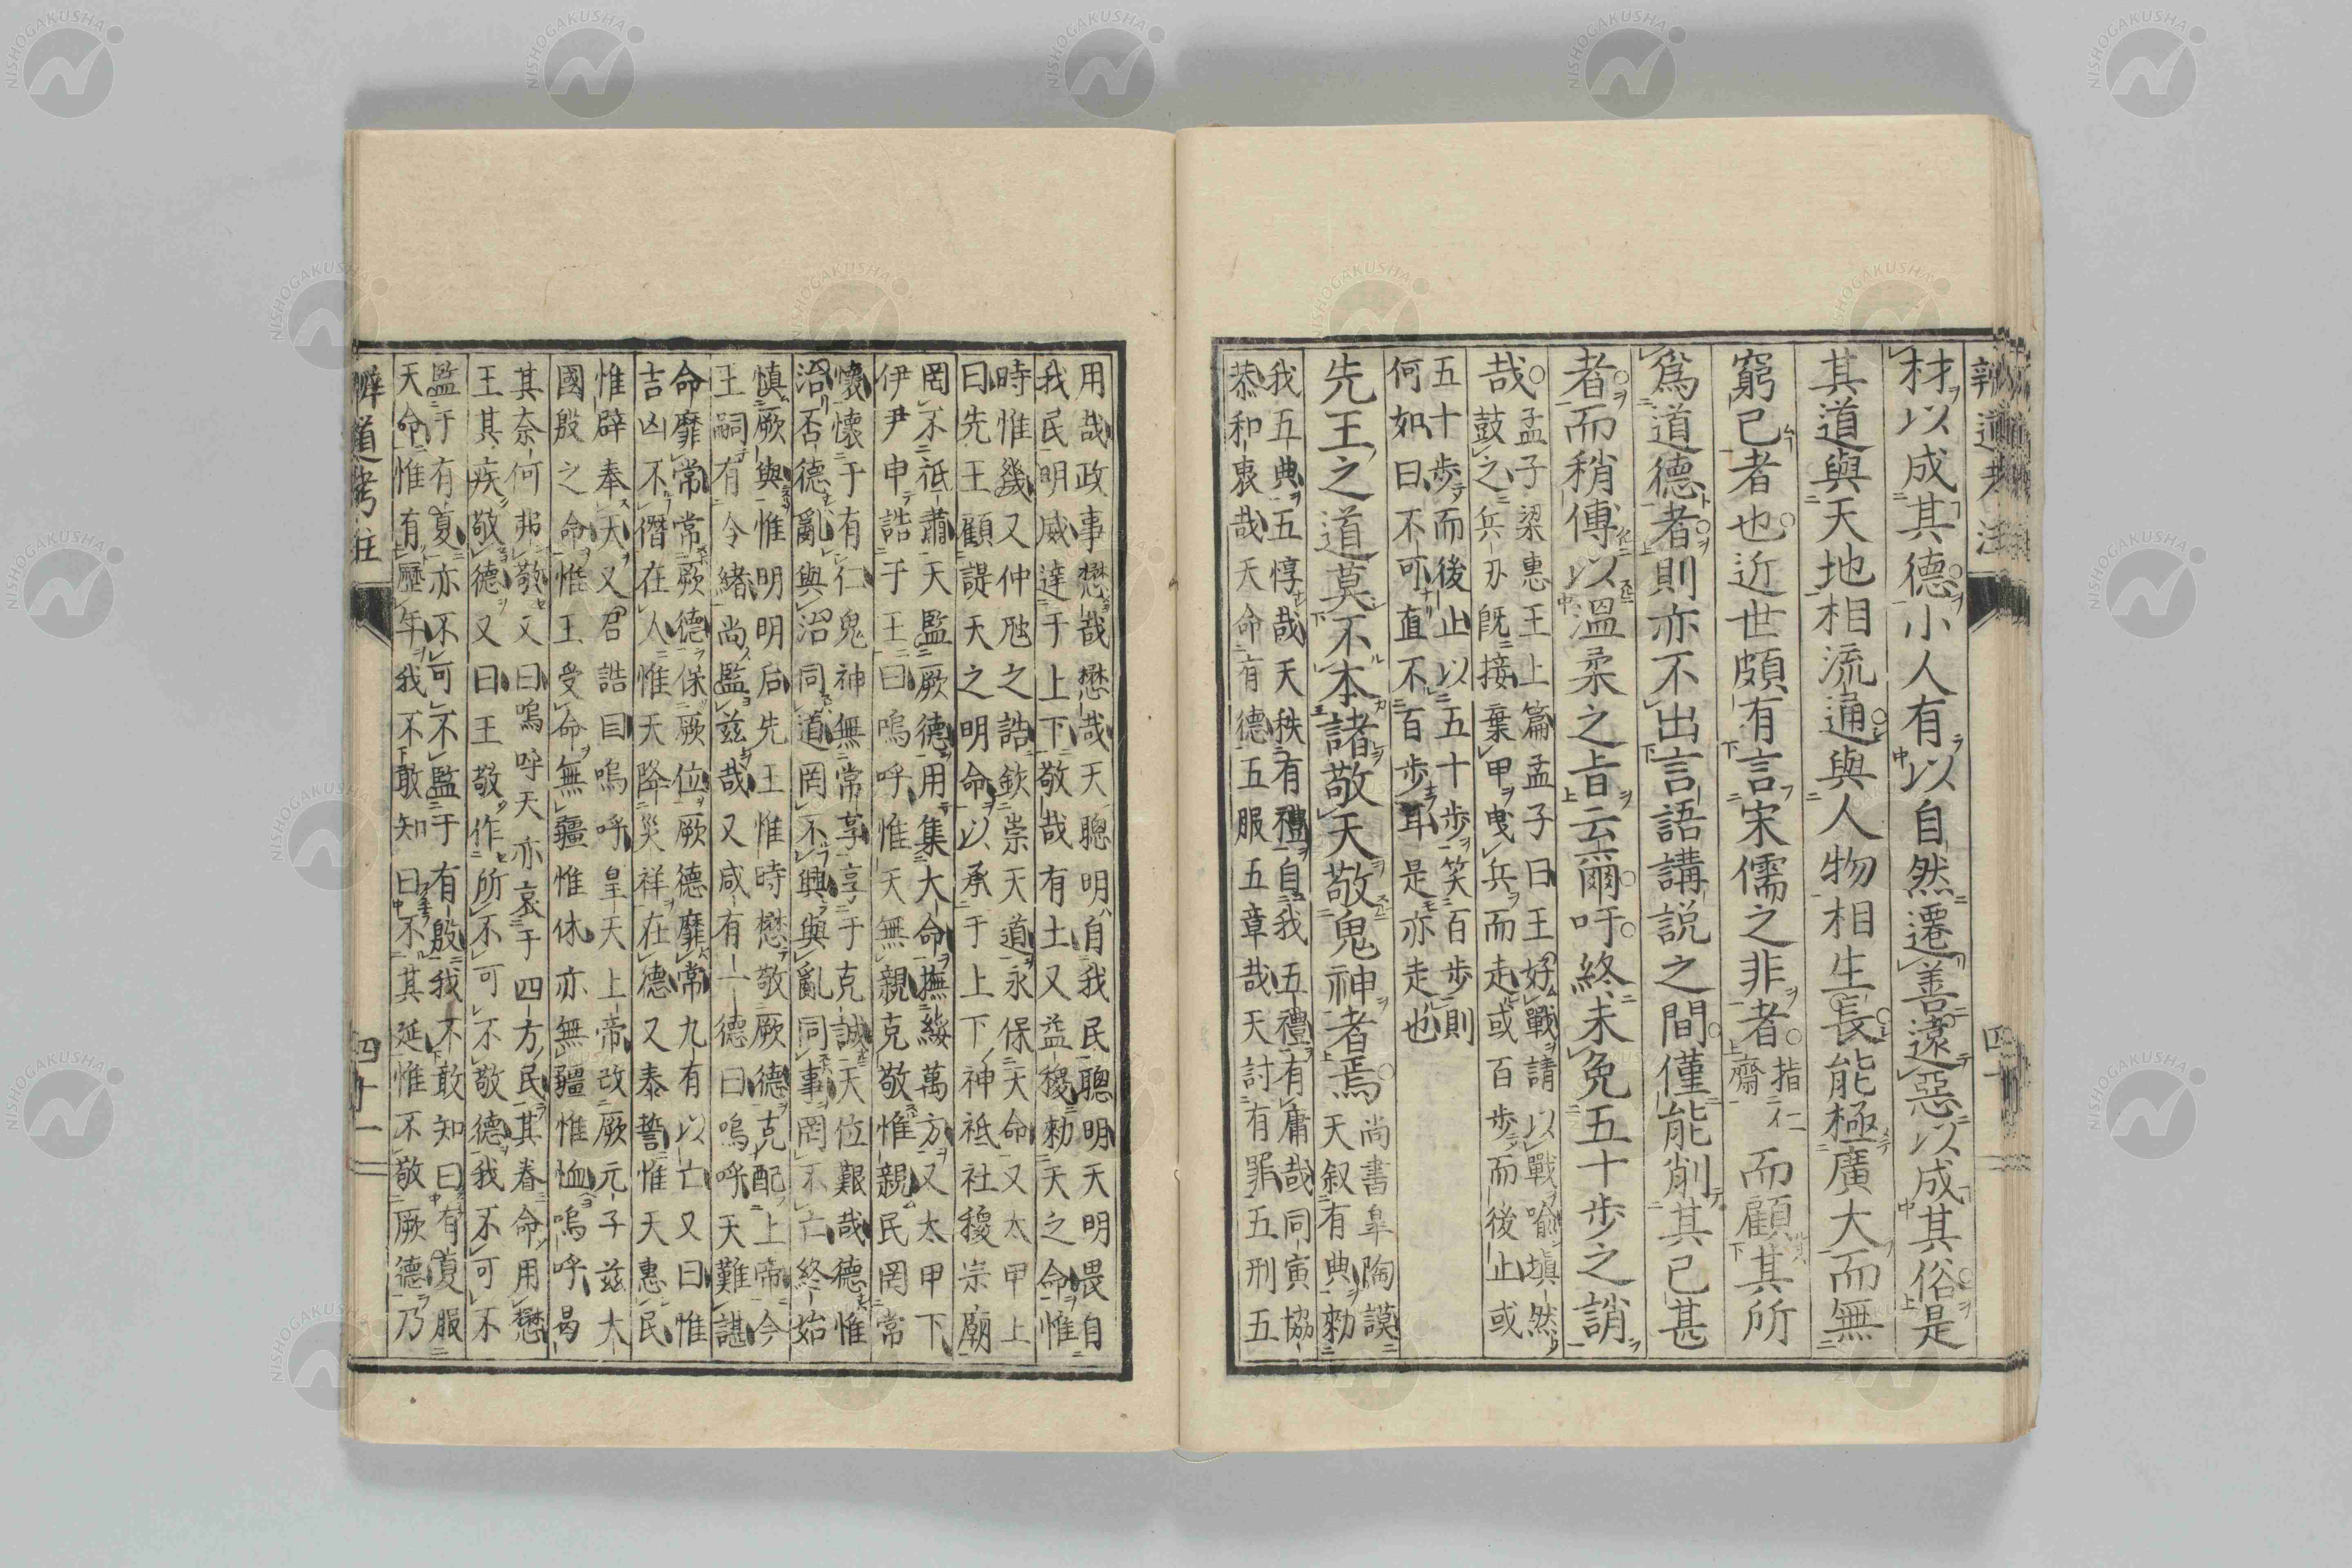 辨道考注
材以成其德小人有以自然遷善遠惡以成其俗是
其道與天地相流通與人物相生長能極廣大而無
窮已者也近世頗有言宋儒之非者指仁齋而顧其所
爲道德者則亦不出言語講説之間僅能削其已甚
者而稍傅以溫柔之旨云爾吁終未免五十步之誚
哉孟子梁惠王上篇孟子曰王好戰請以戰喻塡然
鼓之兵刃既接棄甲曳兵而走或百步而後止或
五十步而後止以五十步笑百步則
何如曰不可直不百步耳是亦走也
先王之道莫不本諸敬天敬鬼神者焉尚書皐陶謨
天叙有典勑
我五典五惇哉天秩有禮自我五禮有庸哉同寅協
恭和衷哉天命有德五服五章哉天討有罪五刑五
用哉政事懋哉懋哉天聰明自我民聰明天明畏自
我民明威達于上下敬哉有土又益稷勑天之命惟
時惟幾又仲虺之誥欽崇天道永保天命又太甲上
曰先王顧諟天之明命以承于上下神祗社稷宗廟
罔不祗肅天監厥德用集大命撫綏萬方又太甲下
伊尹申誥于王曰嗚呼惟天無親克敬惟親民罔常
懷懷于有仁鬼神無常享享于克誠天位艱哉德惟
治否德亂與治同道罔不興與亂同事罔不亡終始
愼厥與惟明明后先王惟時懋敬厥德克配上帝今
王嗣有令緒尚監玆哉又咸有一德曰嗚呼天難諶
命靡常常厥德保厥位厥德靡常九有以亡又曰惟
吉凶不僭在人惟天降災祥在德又泰誓惟天惠民
惟辟奉天又召誥曰嗚呼皇天上帝改厥元子玆大
國殷之命惟王受命無疆惟休亦無疆惟恤嗚呼曷
其奈何弗敬又曰嗚呼天亦哀于四方民其眷命用懋
王其疾敬德又曰王敬作所不可不敬德我不可不
監于有夏亦不可不監于有殷我不敢知曰有夏服
天命惟有歷年我不敢知曰不其延惟不敬厥德乃
辨道考注
四十一